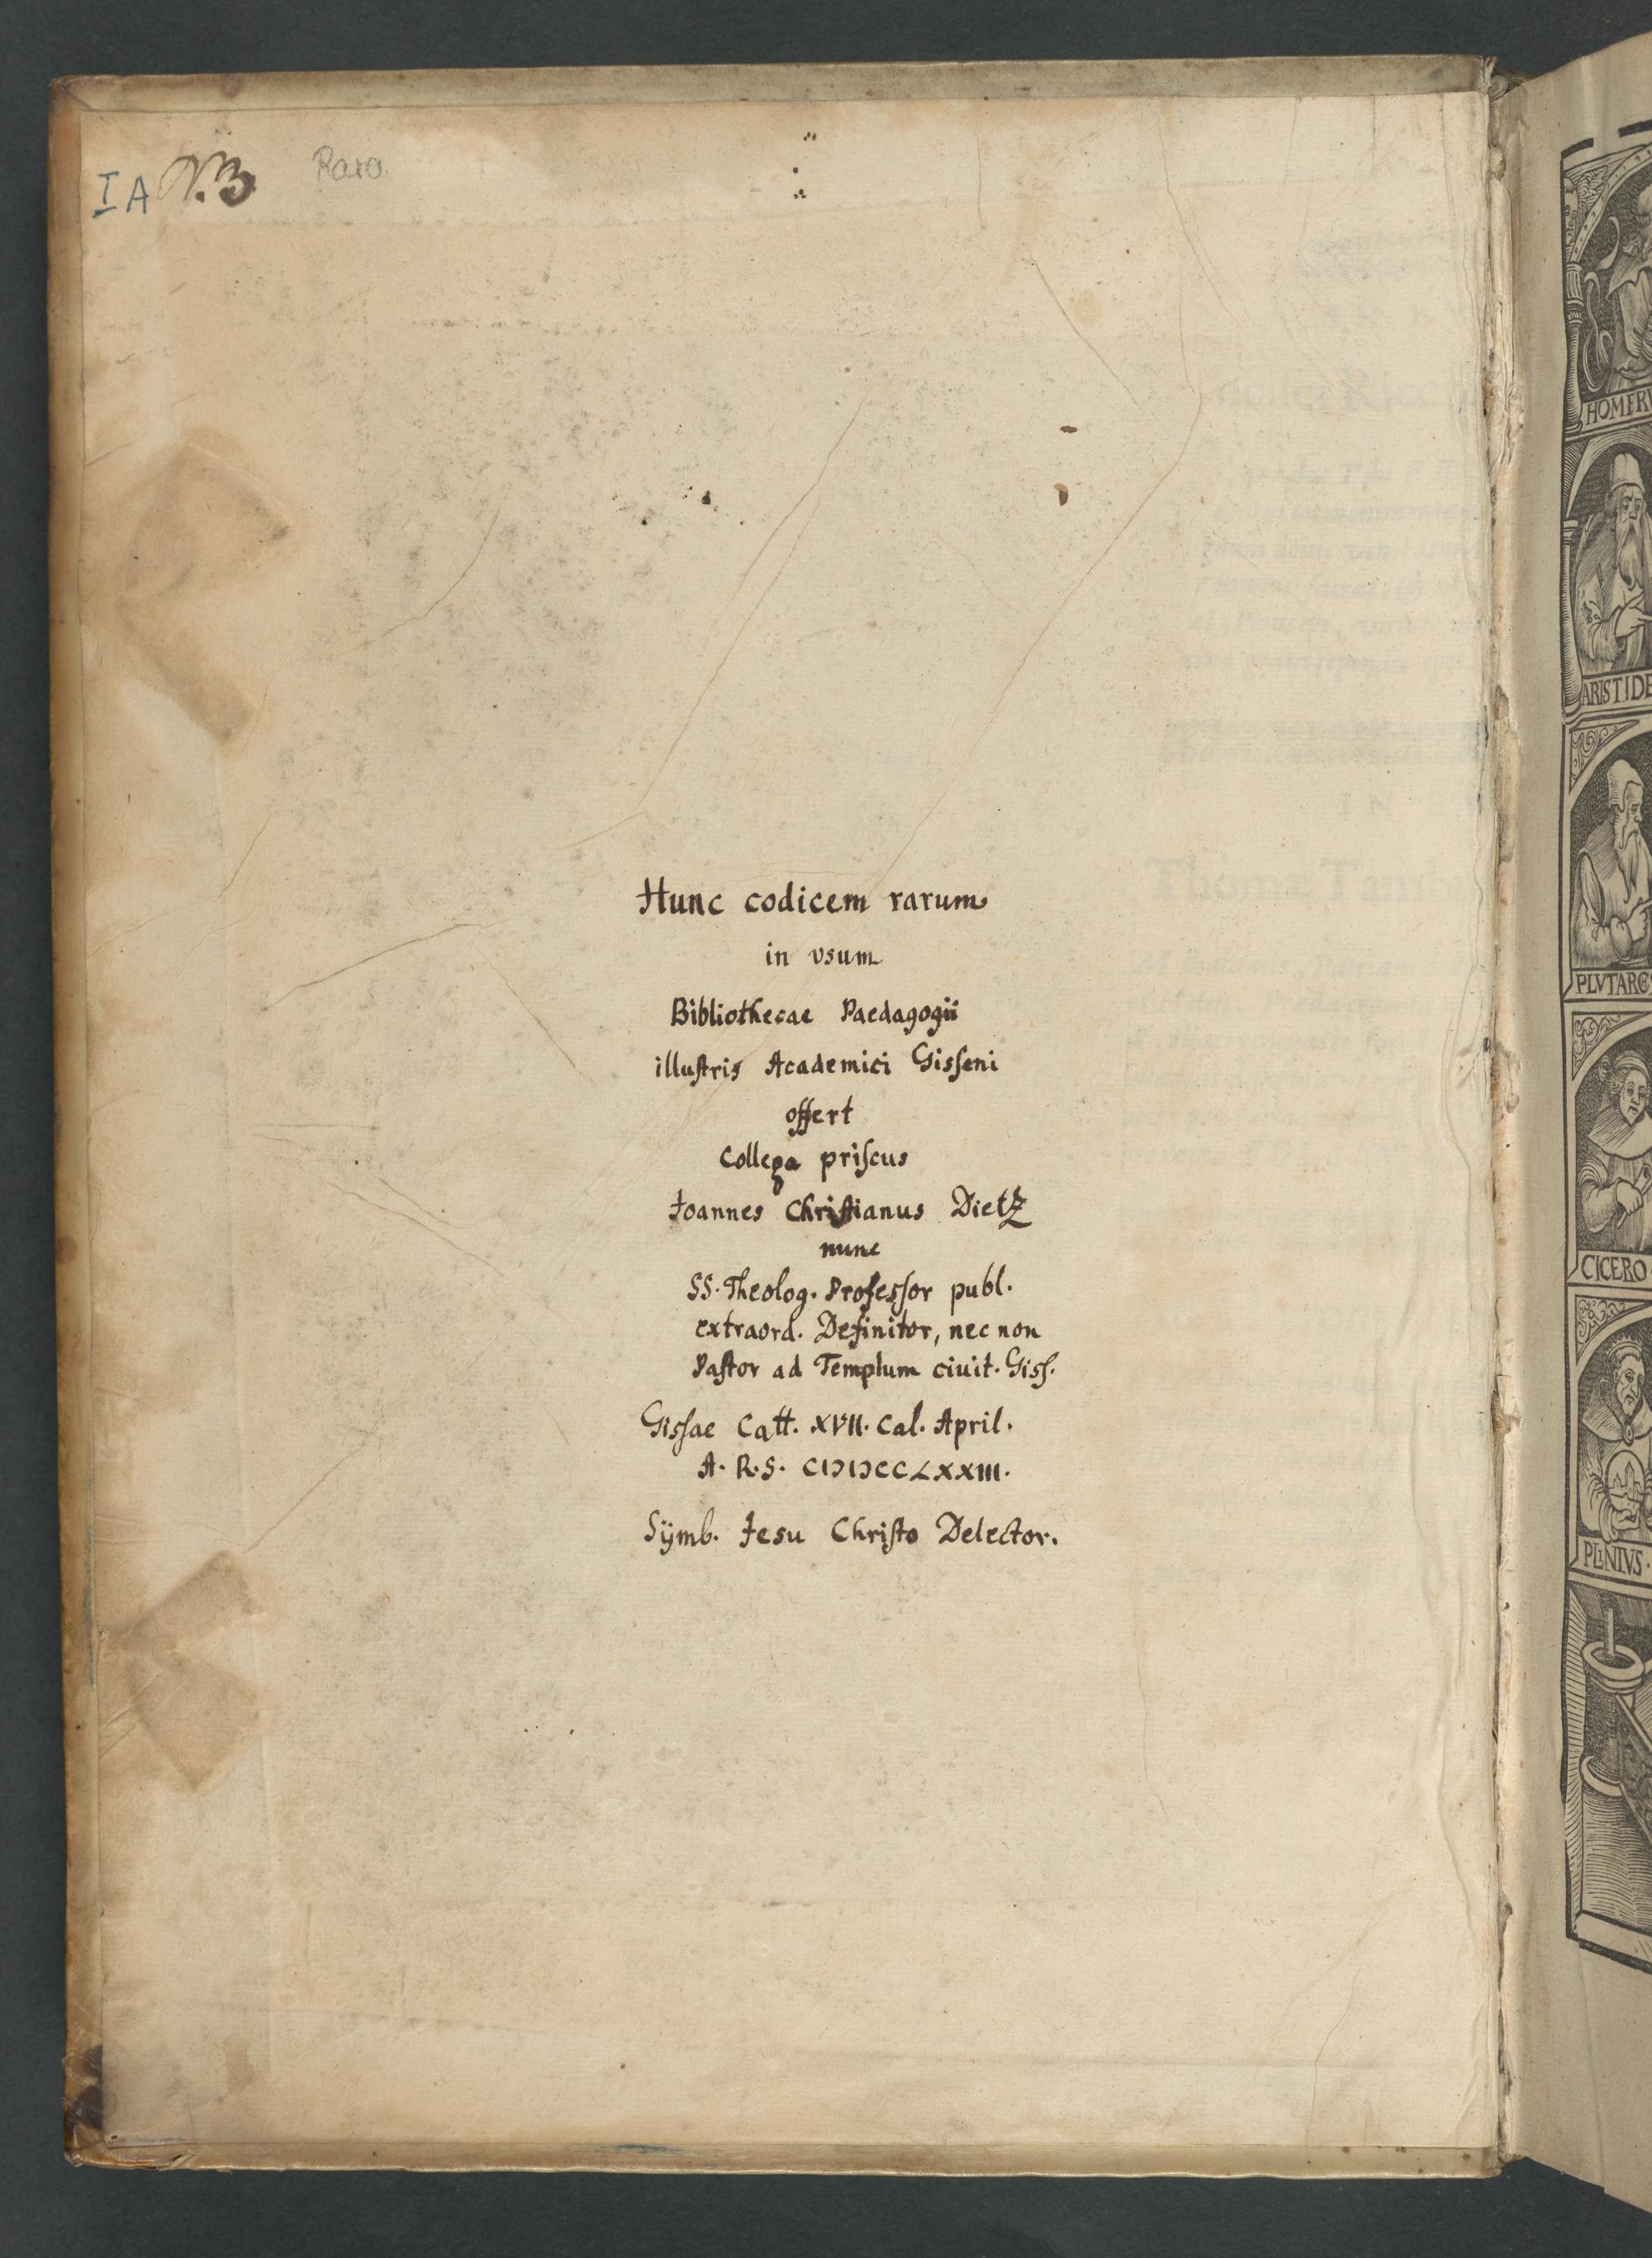 IA N.3 Rara
Hunc codicem rarum
in vsum
Bibliothecae Paedagogii
illuſtris Academici Gisſeni
offert
Collega priſcus
Joannes Chriſtianus Dietz
nunc
SS. Theolog. Profesſor publ.
extraord. Definitor, nec non
Paſtor ad Templum ciuit. Gisſ.
Gisſae Catt. XVII. Cal. April.
A. R. S. CIƆIƆCCLXXIII.
Sÿmb. Jesu Chriſto Delector.
ARISTIDE
CICERO
PLINIVS.